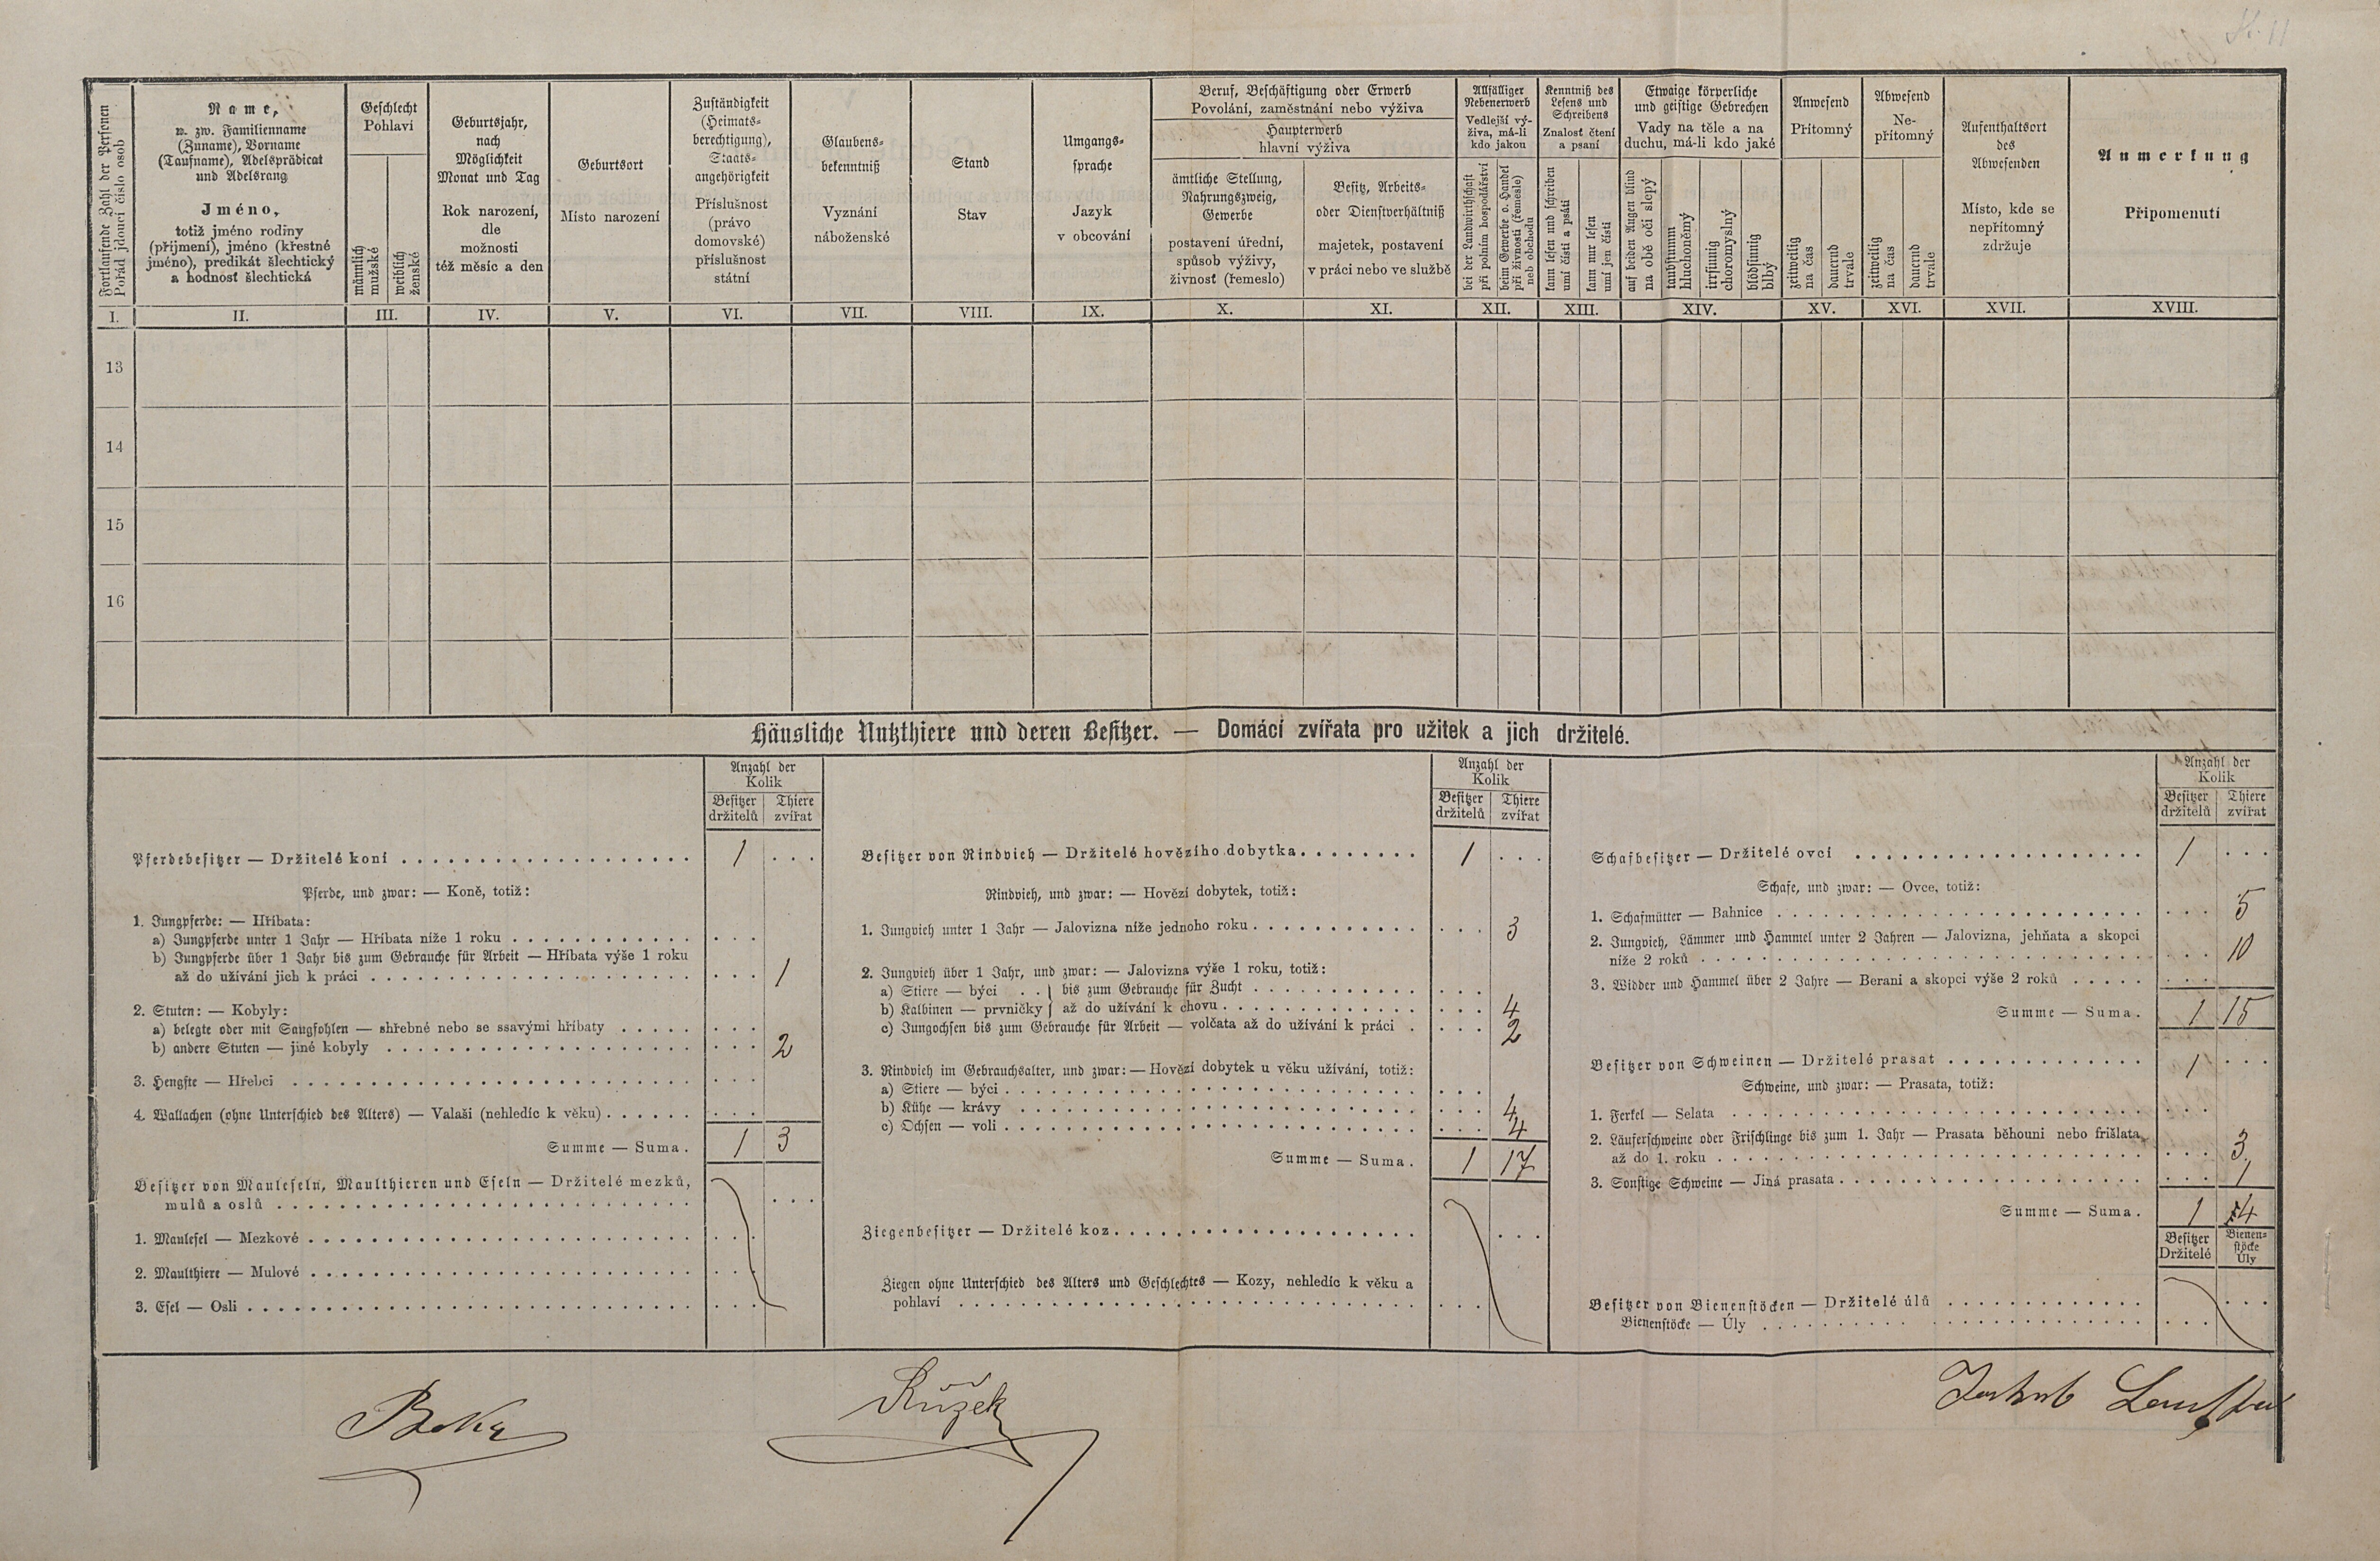 11
Fortlaufende Zahl der Personen
Pořád jdoucí číslo osob
Name,
u. zw. Familienname
(Zuname), Vorname
(Taufname), Adelsprädicat
und Adelsrang
Jméno,
totiž jméno rodiny
(příjmení), jméno (křestné
jméno), predikát šlechtický
a hodnosť šlechtická
Geschlecht
Pohlaví
männlich
mužské
weiblich
ženské
Geburtsjahr,
nach
Möglichkeit
Monat und Tag
Rok narození,
dle
možnosti
též měsíc a den
Geburtsort
Místo narození
Zuständigkeit
(Heimats-
berechtigung),
Staats-
angehörigkeit
Příslušnost
(právo
domovské)
příslušnost
státní
Glaubens-
bekenntniß
Vyznání
náboženské
Stand
Stav
Umgangs-
sprache
Jazyk
v obcování
Beruf, Beschäftigung oder Erwerb
Povolání, zaměstnání nebo výživa
Haupterwerb
hlavní výživa
ämtliche Stellung,
Nahrungszweig,
Gewerbe
postavení úřední,
spůsob výživy,
živnosť (řemeslo)
Besitz, Arbeits-
oder Dienstverhältniß
majetek, postavení
v práci nebo ve službě
Allfälliger
Nebenerwerb
Vedlejší vý-
živa, má-li
kdo jakou
bei der Landwirthschaft
při polním hospodářství
beim Gewerbe o. Handel
při živnosti (řemesle)
neb obchodu
Kenntniß des
Lesens und
Schreibens
Znalosť čtení
a psaní
kann lesen und schreiben
umí čísti a psáti
kann nur lesen
umí jen čísti
Etwaige körperliche
und geistige Gebrechen
Vady na těle a na
duchu, má-li kdo jaké
auf beiden Augen blind
na obě oči slepý
taubstumm
hluchoněmý
irrsinnig
choromyslný
blödsinnig
blbý
Anwesend
Přítomný
zeitweilig
na čas
dauernd
trvale
Abwesend
Ne-
přítomný
zeitweilig
na čas
dauernd
trvale
Aufenthaltsort
des
Abwesenden
Místo, kde se
nepřítomný
zdržuje
Anmerkung
Připomenutí
I. II. III. IV. V. VI. VII. VIII. IX. X. XI. XII. XIII. XIV. XV. XVI. XVII. XVIII.
13
14
15
16
Häusliche Nutzthiere und deren Besitzer. — Domácí zvířata pro užitek a jich držitelé.
Anzahl der
Kolik
Besitzer
držitelů
Thiere
zvířat
Pferdebesitzer — Držitelé koní . . . 1 . . .
Pferde, und zwar: — Koně, totiž:
1. Jungpferde: — Hříbata:
a) Jungpferde unter 1 Jahr — Hříbata níže 1 roku . . .
b) Jungpferde über 1 Jahr bis zum Gebrauche für Arbeit — Hříbata výše 1 roku
až do užívání jich k práci . . . 1
2. Stuten: — Kobyly:
a) belegte oder mit Saugfohlen — shřebné nebo se ssavými hříbaty . . .
b) andere Stuten — jiné kobyly . . . 2
3. Hengste — Hřebci . . .
4. Wallachen (ohne Unterschied des Alters) — Valaši (nehledíc k věku) . . .
Summe — Suma. 1 3
Besitzer von Mauleseln, Maulthieren und Eseln — Držitelé mezků,
mulů a oslů . . .
1. Maulesel — Mezkové . . .
2. Maulthiere — Mulové . . .
3. Esel — Osli . . .
Anzahl der
Kolik
Besitzer
držitelů
Thiere
zvířat
Besitzer von Rindvieh — Držitelé hovězího dobytka . . . 1 . . .
Rindvieh, und zwar: — Hovězí dobytek, totiž:
1. Jungvieh unter 1 Jahr — Jalovizna níže jednoho roku . . . 3
2. Jungvieh über 1 Jahr, und zwar: — Jalovizna výše 1 roku, totiž:
a) Stiere — býci . . } bis zum Gebrauche für Zucht . . .
b) Kalbinen — prvničky } až do užívání k chovu . . . 4
c) Jungochsen bis zum Gebrauche für Arbeit — volčata až do užívání k práci . . . . 2
3. Rindvieh im Gebrauchsalter, und zwar: — Hovězí dobytek u věku užívání, totiž:
a) Stiere — býci . . .
b) Kühe — krávy . . . 4
c) Ochsen — voli . . . 4
Summe — Suma. 1 17
Ziegenbesitzer — Držitelé koz . . .
Ziegen ohne Unterschied des Alters und Geschlechtes — Kozy, nehledíc k věku a
pohlaví . . .
Anzahl der
Kolik
Besitzer
držitelů
Thiere
zvířat
Schafbesitzer — Držitelé ovcí . . . 1 . . .
Schafe, und zwar: — Ovce, totiž:
1. Schafmütter — Bahnice . . . 5
2. Jungvieh, Lämmer und Hammel unter 2 Jahren — Jalovizna, jehňata a skopci
níže 2 roků . . . 10
3. Widder und Hammel über 2 Jahre — Berani a skopci výše 2 roků . . .
Summe — Suma. 1 15
Besitzer von Schweinen — Držitelé prasat . . . 1 . . .
Schweine, und zwar: — Prasata, totiž:
1. Ferkel — Selata . . .
2. Läuferschweine oder Frischlinge bis zum 1. Jahr — Prasata běhouni nebo frišlata
až do 1. roku . . . 3
3. Sonstige Schweine — Jiná prasata . . . 1
Summe — Suma. 1 4
Besitzer
Držitelé
Bienen-
stöcke
Úly
Besitzer von Bienenstöcken — Držitelé úlů . . .
Bienenstöcke — Úly . . .
Růžek
Jakub